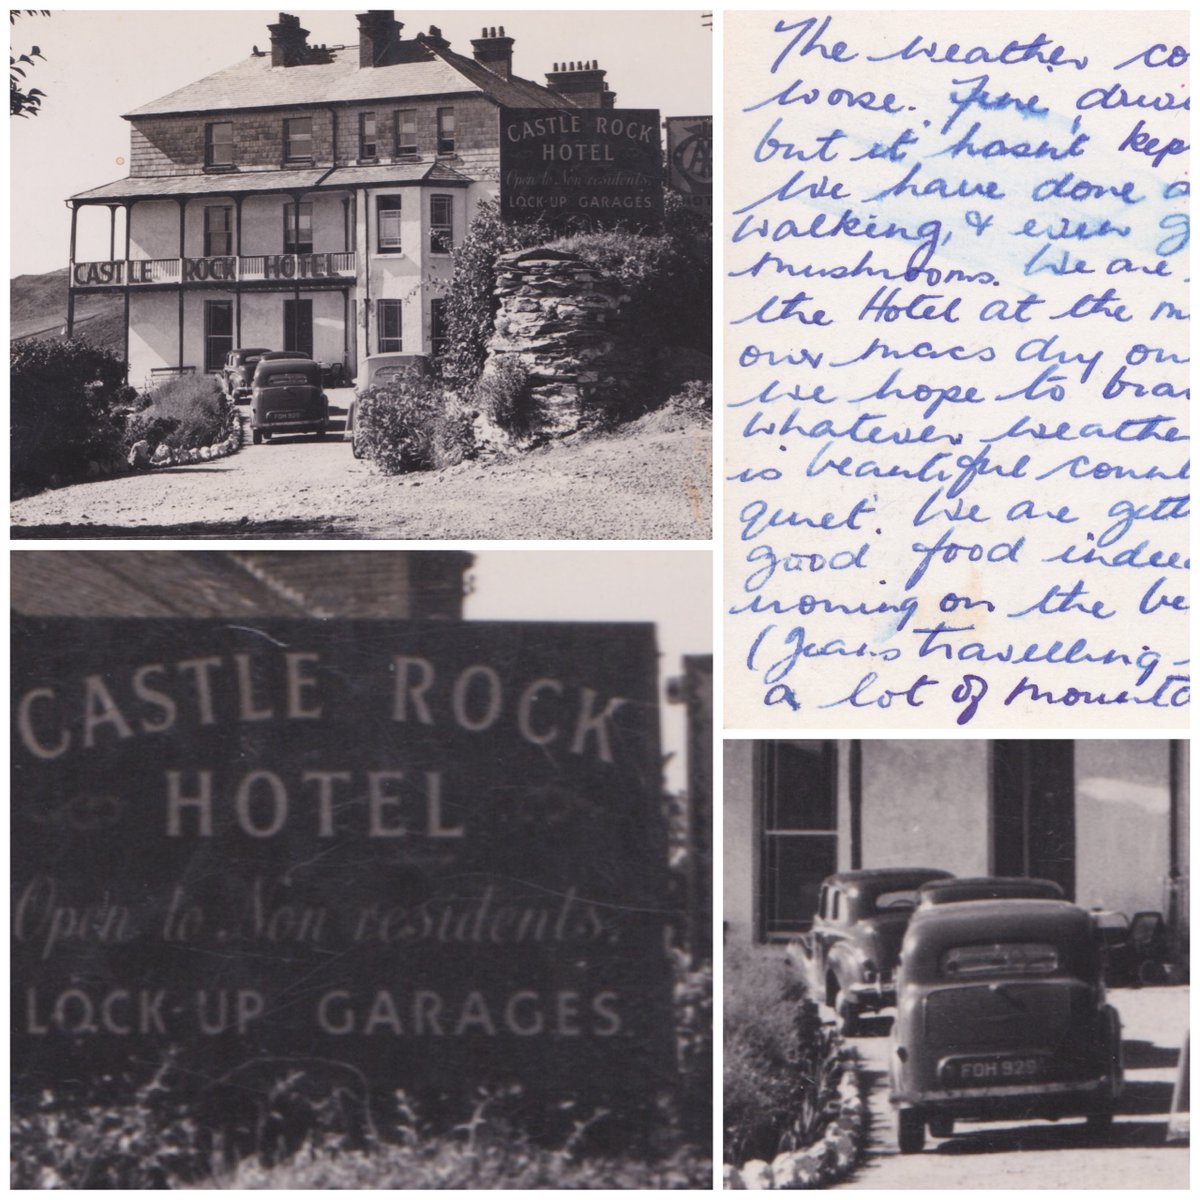 CASTLE ROCK
HOTEL
Open to Non residents.
LOCK-UP GARAGES
AA
CASTLE ROCK HOTEL
FOH 929
The weather co
worse. Fine, drivi
but it hasnt kep
We have done a
walking, & even g
mushrooms. We are
the Hotel at the m
our macs dry on
We hope to brav
whatever weathe
is beautiful count
quiet. We are gett
good food indee
ironing on the be
(Jeans travelling
a lot of mounta
CASTLE ROCK
HOTEL
Open to Non residents.
LOCK-UP GARAGES
FOH 929